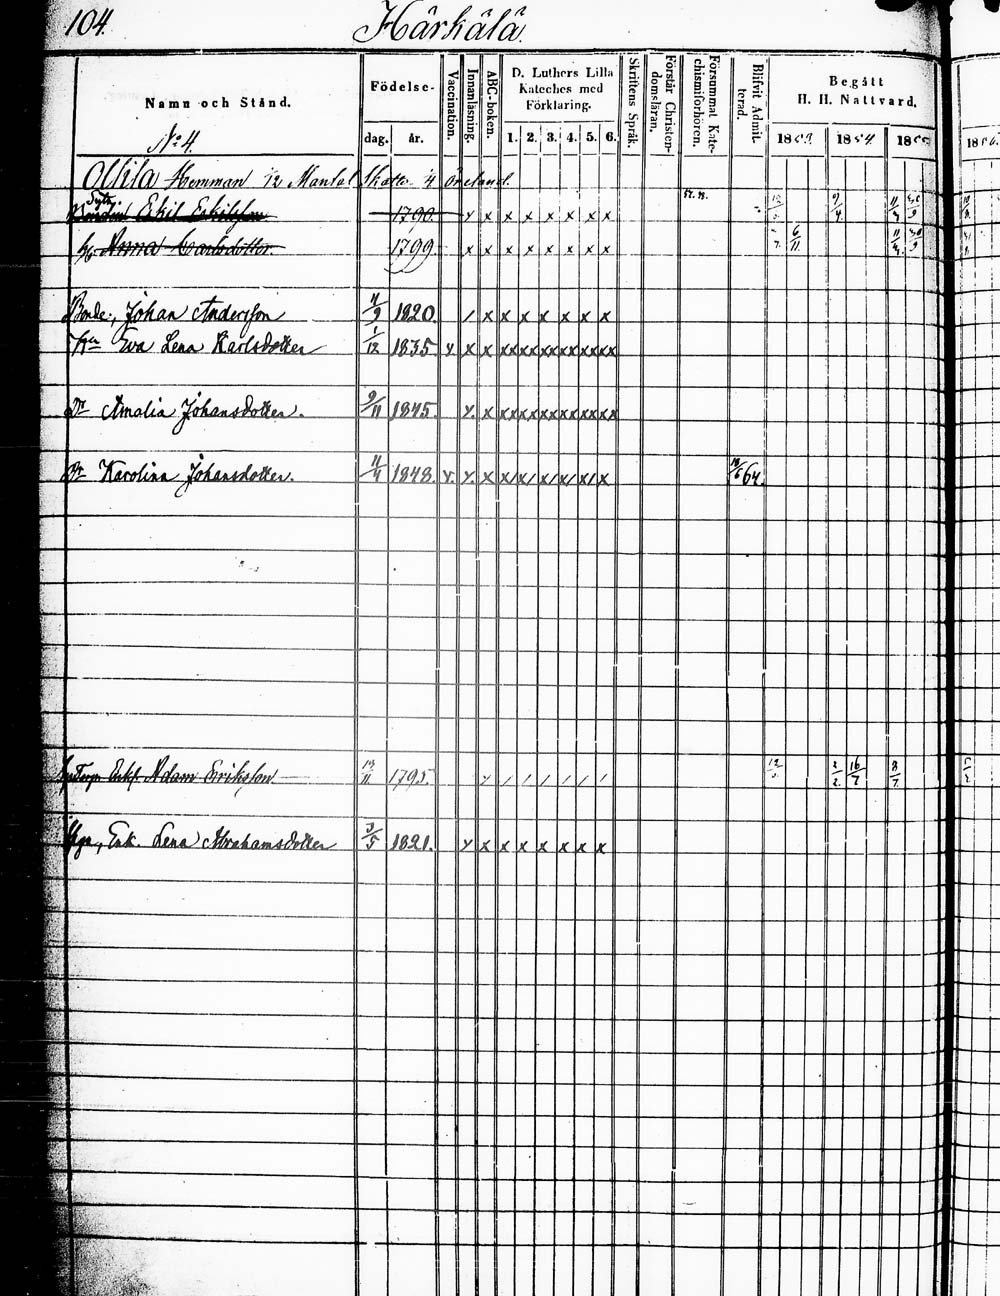 104. Härkälä
Namn och Stånd. Födelse- Vaccination. Innanläsning. ABC-boken. D. Luthers Lilla Kateches med Förklaring. Skriftens Språk. Förstår Christendomsläran. Försummat Katechismiförhören. Blifvit Admitterad. Begått H. H. Nattvard.
dag. år. 1. 2. 3. 4. 5. 6. 1853. 1854. 1855. 1856.
No 4.
Ollila Hemman 1/2 Mantal Skatte 4 öresland.
Eskil Eskilsson 1790. x x x x x x x x
Anna Carlsdotter. 1799. x x x x x x x x
Bonde, Johan Andersson 4/9 1820. / x x x x x x x
Hu Eva Lena Karlsdotter 1/12 1835 v x x xx xx xx xx xx xx
Dr Amalia Johansdotter. 9/11 1845. x. x xx xx xx xx xx xx
Dr Karolina Johansdotter. 11/4 1848. v. x. x x/ x/ x/ x/ x/ x 64.
Adam Eriksson 13/11 1795.
Enk. Lena Abrahamsdotter 3/5 1821. x x x x x x x x